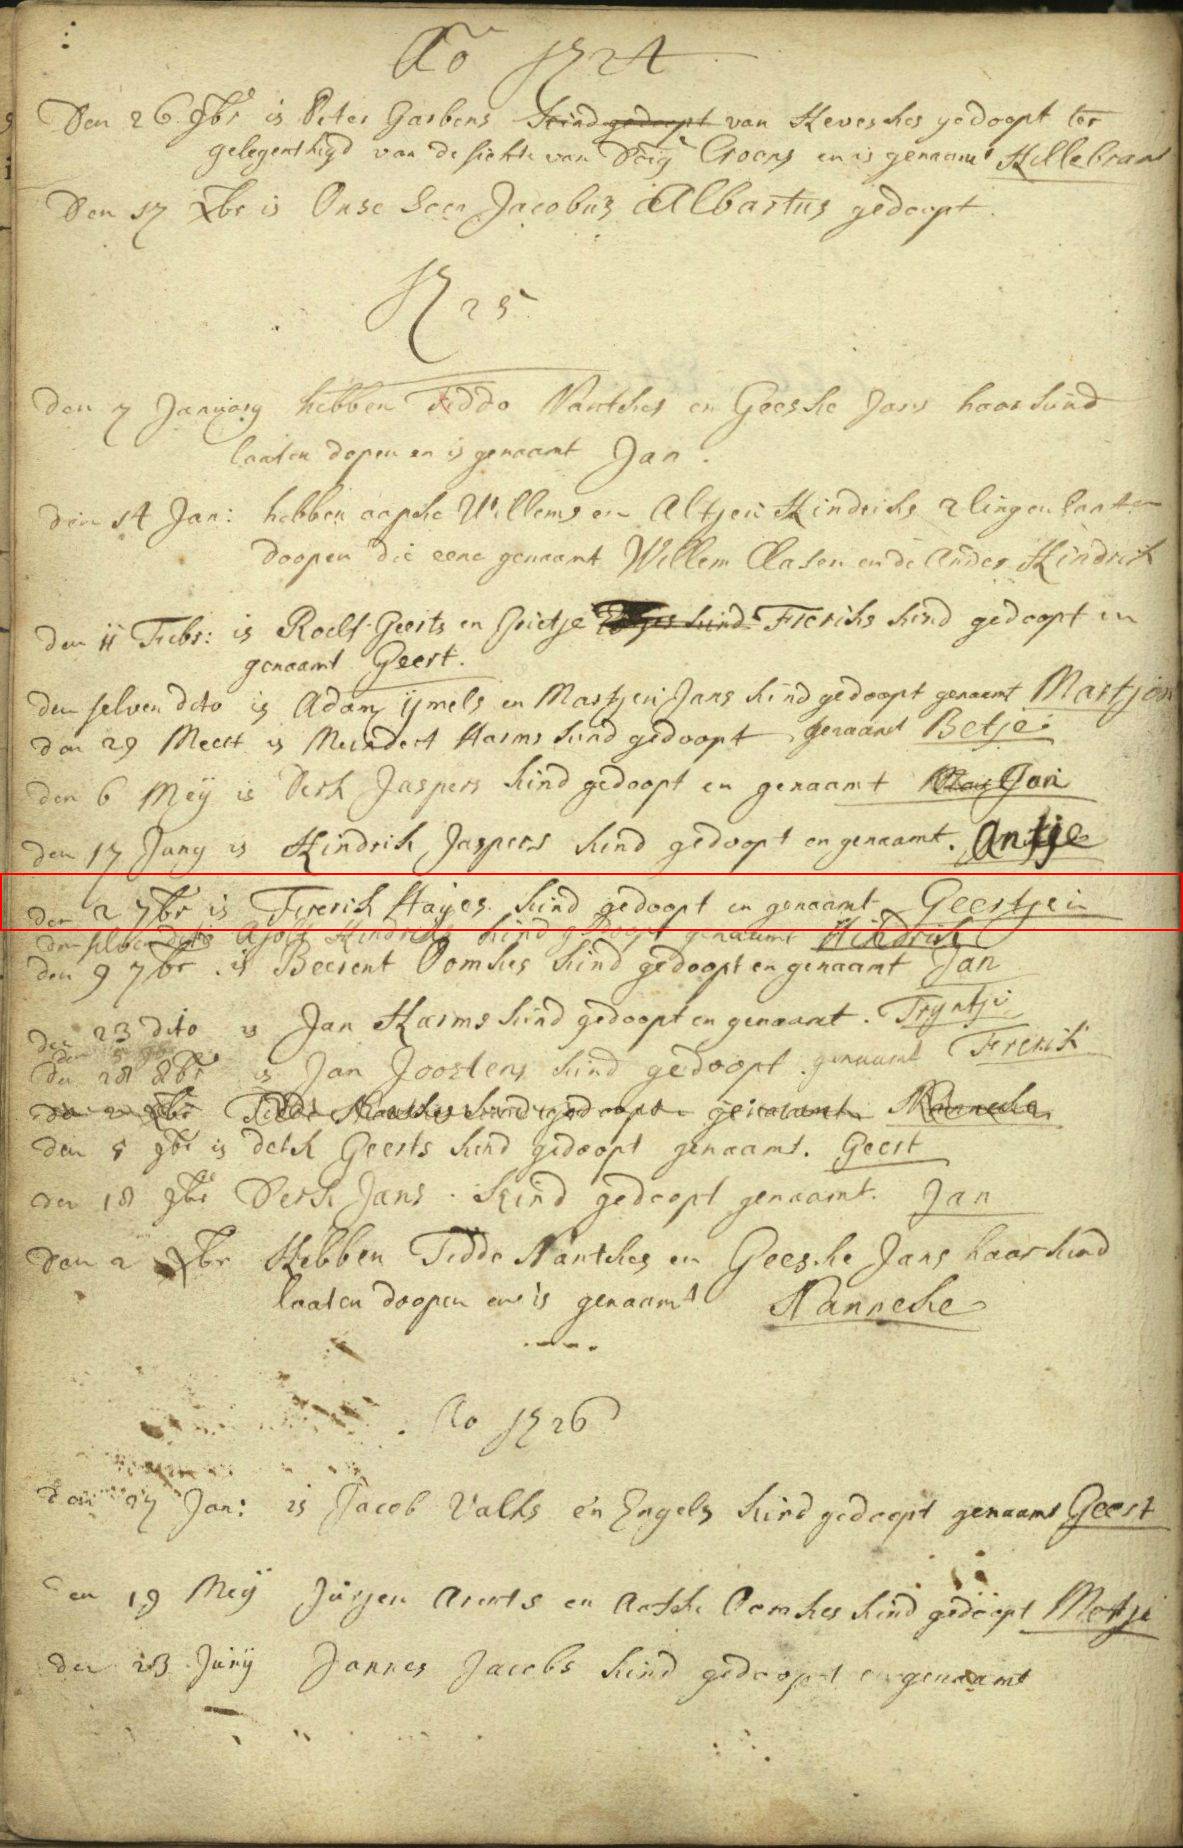 Ao 1724
Den 26 9br is Peter Garbens kind gedoopt van Heveskes gedoopt ter
gelegenthijd van de siekte van Do: Croons en is genaamt Hillebrant
Den 17 Xbr is Onse Soon Jacobus Albartus gedoopt
1725
den 7 January hebben Tiddo Nantkes en Geeske Jans haar kind
laaten dopen en is genaamt Jan.
den 14 Jan: hebben aapke Willems en Altjen Hindriks 2 lingen laaten
doopen die eene genaamt Willem Clasen en de Ander Hindrik
den 11 Febr: is Roelf Geerts en Grietje kind Freriks kind gedoopt en
genaamt Geert.
den selven dito is Adam ijmels en Martjen Jans kind gedoopt genaamt Martjen
den 29 Meert is Meindert Harms kind gedoopt genaamt Betje.
den 6 Meij is Derk Jaspers kind gedoopt en genaamt Jan
den 17 Juny is Hindrik Jaspers kind gedoopt en genaamt. Antje
den 2 7br is Frerik Hayes kind gedoopt en genaamt Geertjen
den selven dito Ajolt Hindriks kind gedoopt genaamt Hindrik
den 9 7br is Beerent Oomkes kind gedoopt en genaamt Jan
den 23 dito is Jan Harms kind gedoopt en genaamt. Tryntje
den 28 8br is Jan Joostens kind gedoopt genaamt Frerik
den 2 Xbr Tiddo Nantkes kind gedoopt genaamt Nanneke
den 5 9br is derk Geerts kind gedoopt genaamt. Geert
den 18 9br Derk Jans kind gedoopt genaamt. Jan
Den 2 Xbr Hebben Tiddo Nantkes en Geeske Jans haar kind
laaten doopen en is genaamt Nanneke
Ao 1726
Den 27 Jan: is Jacob Valks en Engels kind gedoopt genaamt Geert
Den 19 Meij Jurjen Arents en Aafke Oomkes kind gedoopt Metje
den 23 Junij Jannes Jacobs kind gedoopt en genaamt